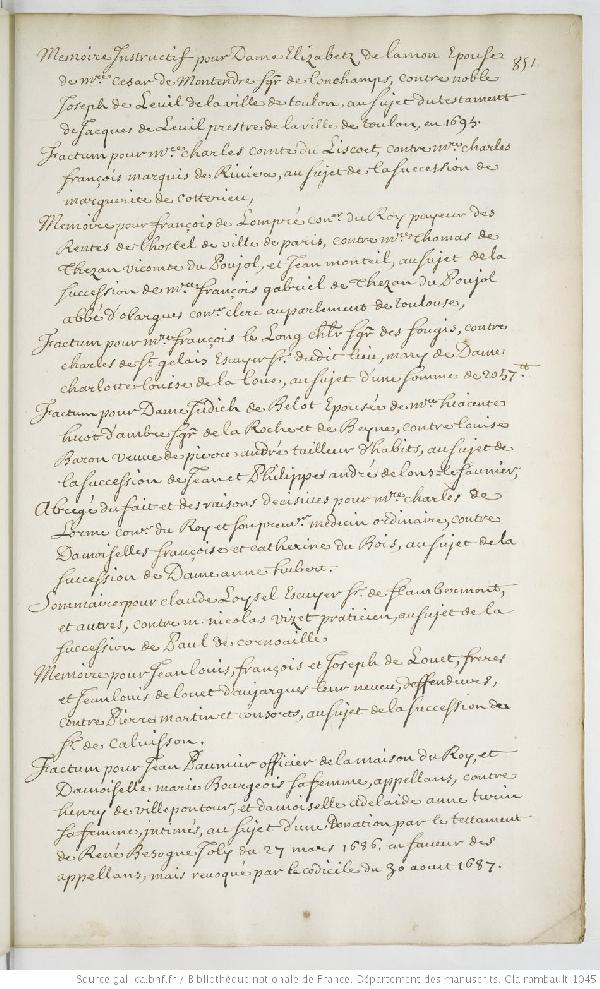 851.
Memoire Instructif pour Dame Elizabetz de lamon Epouse
de mre. Cesar de Montendre sgr. de Lonchamps, contre noble
Joseph de Leuil de la ville de toulon, au sujet du testament
de Jacques de Leuil prestre de la ville de toulon, en 1693.
Factum pour mre. Charles comte du Liscoet, contre mre. Charles
françois marquis de Riviera, au sujet de la succession de
marguerite de Cotterieu,
Memoire pour françois de Lompré conr. du Roy payeur des
Rentes de lhostel de ville de paris, contre mre. Thomas de
Thezan vicomte du Poujol, et Jean monteil, au sujet de la
succession de mre. françois gabriel de Thezan du Poujol
abbé d'olargues conr. clerc au parlement de toulouse,
Factum pour mre. françois le Long chlr. sgr. des fougis, contre
charles de st. gelais Escuyer sr. dudit lieu, mary de Dame
charlotte louise de la Loue, au sujet d'une somme de 2057tt.
Factum pour Dame Judich de Belot Epousée de mre. hiacinte
huot d'ambre sgr. de la Roche et de Beyne, contre louise
Baron veuve de pierre andré tailleur d'habits, au sujet de
la succession de Jean et Philippes andré de lons le saunier,
Abregé du fait et des raisons decisives pour mre. charles de
Lorme conr. du Roy et son premr. medecin ordinaire, contre
Damoiselles françoise et catherine du Bois, au sujet de la
succession de Dame anne hubert.
Sommaire pour claude Loysel Escuyer sr. de flambermont,
et autres, contre m. nicolas vizet praticien, au sujet de la
succession de Paul de cornoaille
Memoire pour Jean louis, françois et Joseph de Louet, freres
et Jean louis de louet d'aujargues leur neveu, deffendeurs,
contre Pierre martin et consorts, au sujet de la succession du
sr. de Calvisson.
Factum pour Jean Daumuir officier de la maison du Roy, et
Damoiselle marie Bourgeois sa femme, appellans, contre
henry de villepontour, et damoiselle adelaide anne turin
sa femme, intimés, au sujet d'une Donation par le testament
de René Besogne Joly du 27 mars 1686. en faveur des
appellans, mais revoqué par le codicile du 30 aout 1687.
Source gallica.bnf.fr / Bibliothèque nationale de France. Département des manuscrits. Clairambault 1045